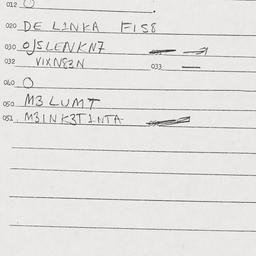 012 O
020 DE L1NKA FIS8
030 OJSLENKN7
032 VIXN83N 033 —
040 O
050 M3 LUMT
051 M31NK3T1NTA